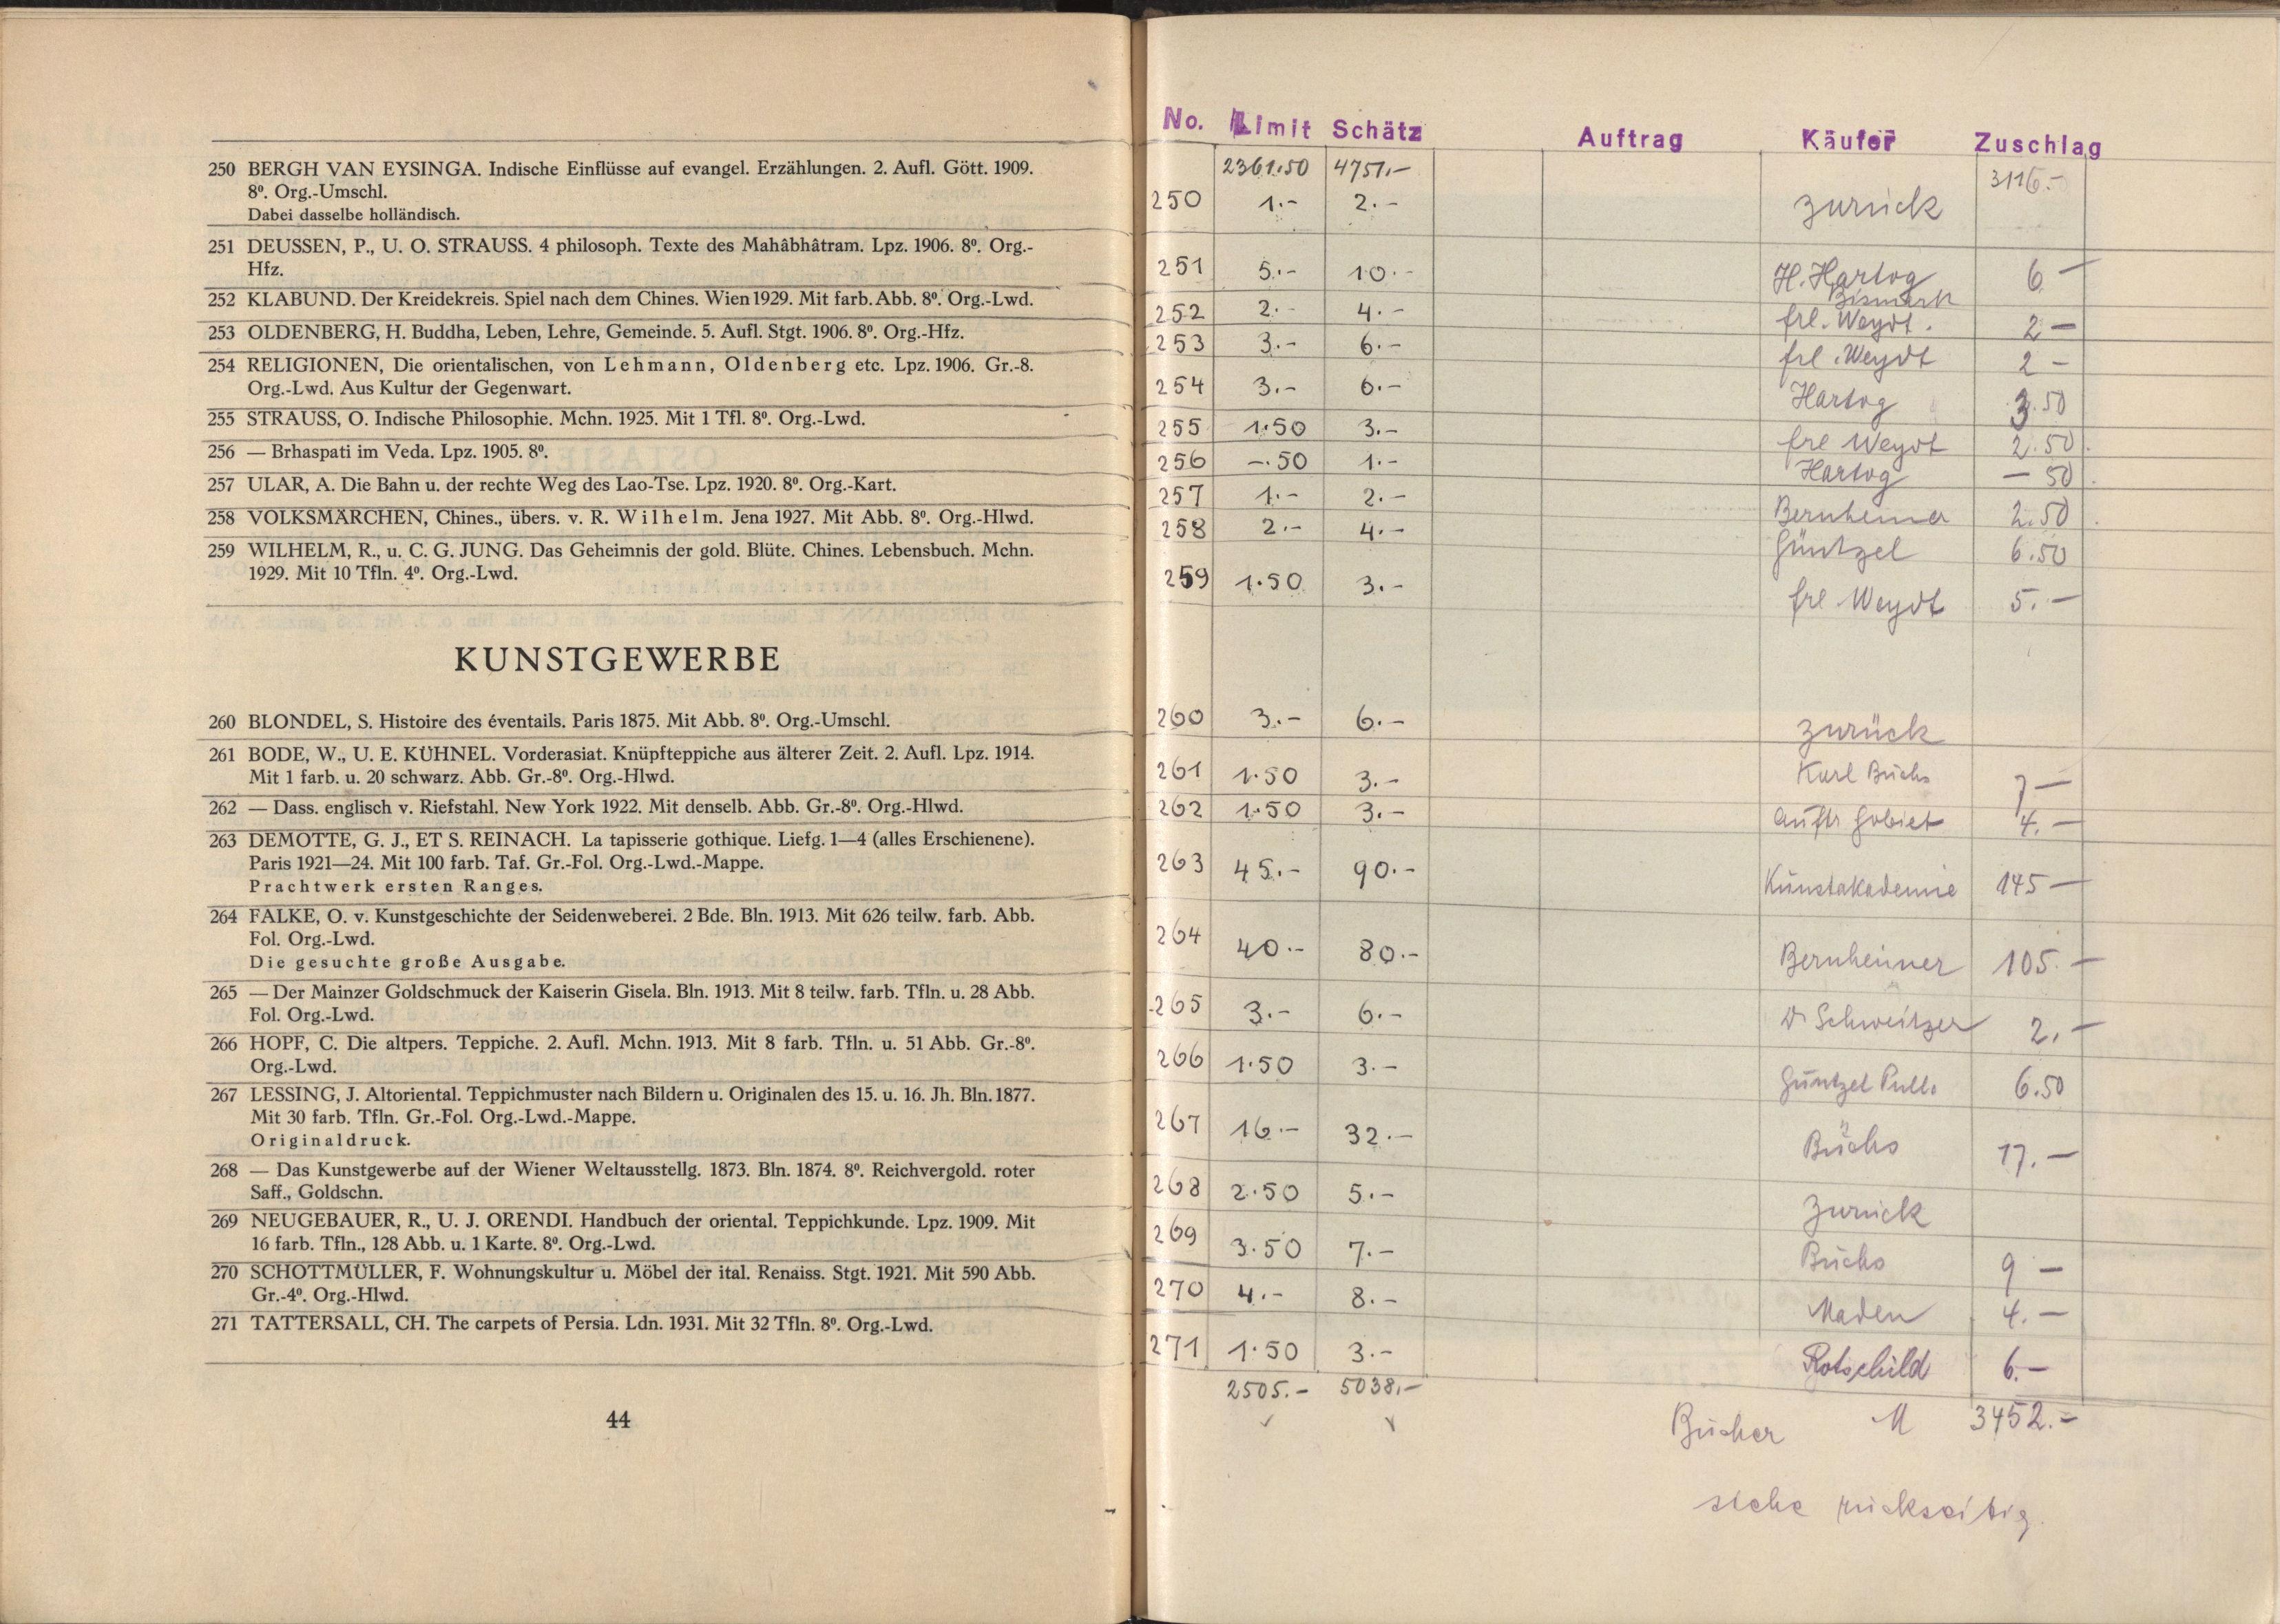 250 BERGH VAN EYSINGA. Indische Einflüsse auf evangel. Erzählungen. 2. Aufl. Gött. 1909.
8º. Org.-Umschl.
Dabei dasselbe holländisch.
251 DEUSSEN, P., U. O. STRAUSS. 4 philosoph. Texte des Mahâbhâtram. Lpz. 1906. 8º. Org.-
Hfz.
252 KLABUND. Der Kreidekreis. Spiel nach dem Chines. Wien 1929. Mit farb. Abb. 8º. Org.-Lwd.
253 OLDENBERG, H. Buddha, Leben, Lehre, Gemeinde. 5. Aufl. Stgt. 1906. 8º. Org.-Hfz.
254 RELIGIONEN, Die orientalischen, von Lehmann, Oldenberg etc. Lpz. 1906. Gr.-8.
Org.-Lwd. Aus Kultur der Gegenwart.
255 STRAUSS, O. Indische Philosophie. Mchn. 1925. Mit 1 Tfl. 8º. Org.-Lwd.
256 — Brhaspati im Veda. Lpz. 1905. 8º.
257 ULAR, A. Die Bahn u. der rechte Weg des Lao-Tse. Lpz. 1920. 8º. Org.-Kart.
258 VOLKSMÄRCHEN, Chines., übers. v. R. Wilhelm. Jena 1927. Mit Abb. 8º. Org.-Hlwd.
259 WILHELM, R., u. C. G. JUNG. Das Geheimnis der gold. Blüte. Chines. Lebensbuch. Mchn.
1929. Mit 10 Tfln. 4º. Org.-Lwd.
KUNSTGEWERBE
260 BLONDEL, S. Histoire des éventails. Paris 1875. Mit Abb. 8º. Org.-Umschl.
261 BODE, W., U. E. KÜHNEL. Vorderasiat. Knüpfteppiche aus älterer Zeit. 2. Aufl. Lpz. 1914.
Mit 1 farb. u. 20 schwarz. Abb. Gr.-8º. Org.-Hlwd.
262 — Dass. englisch v. Riefstahl. New York 1922. Mit denselb. Abb. Gr.-8º. Org.-Hlwd.
263 DEMOTTE, G. J., ET S. REINACH. La tapisserie gothique. Liefg. 1—4 (alles Erschienene).
Paris 1921—24. Mit 100 farb. Taf. Gr.-Fol. Org.-Lwd.-Mappe.
Prachtwerk ersten Ranges.
264 FALKE, O. v. Kunstgeschichte der Seidenweberei. 2 Bde. Bln. 1913. Mit 626 teilw. farb. Abb.
Fol. Org.-Lwd.
Die gesuchte große Ausgabe.
265 — Der Mainzer Goldschmuck der Kaiserin Gisela. Bln. 1913. Mit 8 teilw. farb. Tfln. u. 28 Abb.
Fol. Org.-Lwd.
266 HOPF, C. Die altpers. Teppiche. 2. Aufl. Mchn. 1913. Mit 8 farb. Tfln. u. 51 Abb. Gr.-8º.
Org.-Lwd.
267 LESSING, J. Altoriental. Teppichmuster nach Bildern u. Originalen des 15. u. 16. Jh. Bln. 1877.
Mit 30 farb. Tfln. Gr.-Fol. Org.-Lwd.-Mappe.
Originaldruck.
268 — Das Kunstgewerbe auf der Wiener Weltausstellg. 1873. Bln. 1874. 8º. Reichvergold. roter
Saff., Goldschn.
269 NEUGEBAUER, R., U. J. ORENDI. Handbuch der oriental. Teppichkunde. Lpz. 1909. Mit
16 farb. Tfln., 128 Abb. u. 1 Karte. 8º. Org.-Lwd.
270 SCHOTTMÜLLER, F. Wohnungskultur u. Möbel der ital. Renaiss. Stgt. 1921. Mit 590 Abb.
Gr.-4º. Org.-Hlwd.
271 TATTERSALL, CH. The carpets of Persia. Ldn. 1931. Mit 32 Tfln. 8º. Org.-Lwd.
44
No. Limit Schätz Auftrag Käufer Zuschlag
2361.50 4751.- 3116.-
250 1.- 2.- zurück
251 5.- 10.- H. Hartog 6 -
Bismark
252 2.- 4.- frl. Weydt. 2 -
253 3.- 6.- frl. Weydt 2 -
254 3.- 6.- Hartog 3.50
255 1.50 3.- frl Weydt 2.50
256 -.50 1.- Hartog - 50
257 1.- 2.- Bernheimer 2.50
258 2.- 4.- Güntzel 6.50
259 1.50 3.- frl Weydt 5.-
260 3.- 6.- zurück
261 1.50 3.- Karl Büchs 7 -
262 1.50 3.- Auftr 4.-
263 45.- 90.- Kunstakademie 145 -
264 40.- 80.- Bernheimer 105.-
265 3.- 6.- Dr Schweitzer 2.-
266 1.50 3.- Güntzel 6.50
267 16.- 32.- Büchs 17.-
268 2.50 5.- zurück
269 3.50 7.- Büchs 9 -
270 4.- 8.- Maden 4.-
271 1.50 3.- Rotschild 6.-
2505.- 5038.-
Bücher M 3452.-
siehe rückseitig.